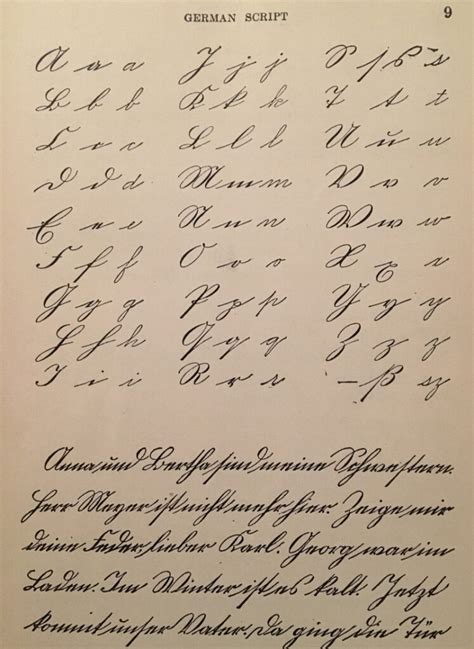 GERMAN SCRIPT 9
A a a J j j S ſ ß s
B b b K k k T t t
C c c L l l U u u
D d d M m m V v v
E e e N n n W w w
F f f O o o X x x
G g g P p p Y y y
H h h Q q q Z z z
I i i R r r – ß sz
Anna und Bertha sind meine Schwestern.
Herr Meyer ist nicht mehr hier. Zeige mir
deine Feder, lieber Karl. Georg war im
Laden. Im Winter ist es kalt. Jetzt
kommt unser Vater. Da ging die Tür